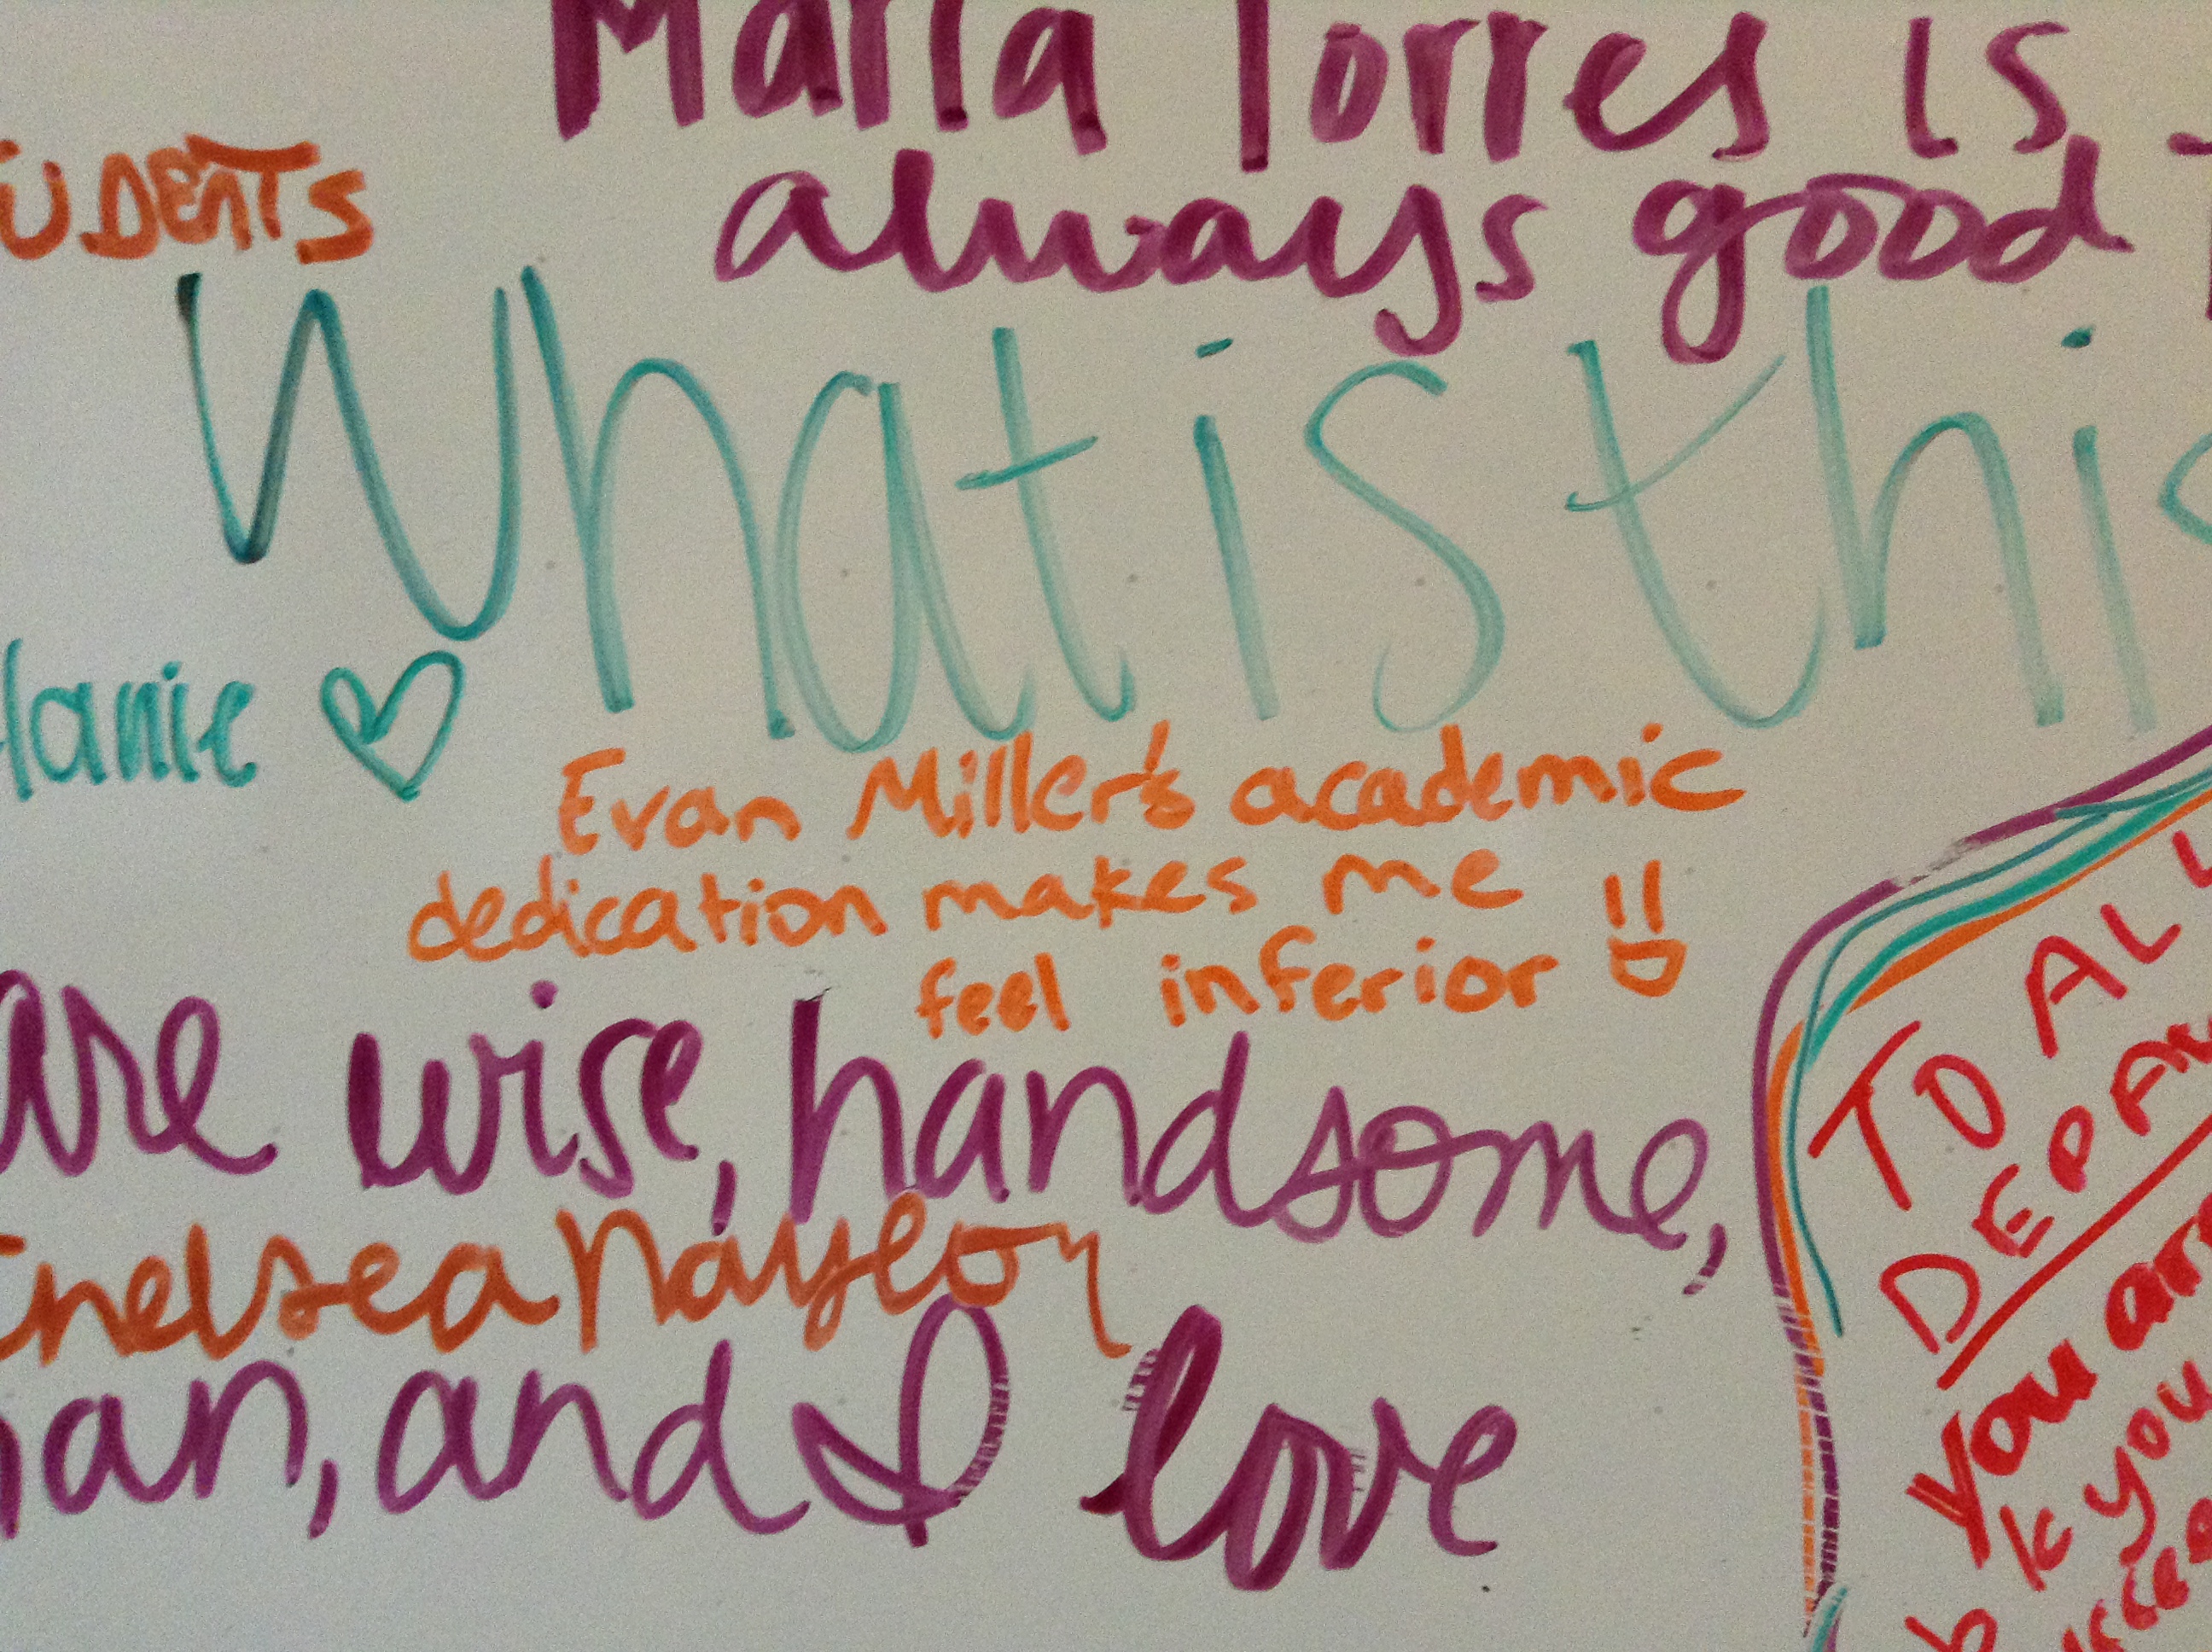 Maria Torres is
always good
UDENTS
What is this
lanie ♡
Evan Miller's academic
dedication makes me
feel inferior =D
are wise, handsome,
Chelsea Naylor
an, and I love
TO ALL
DEPA
You are
k you